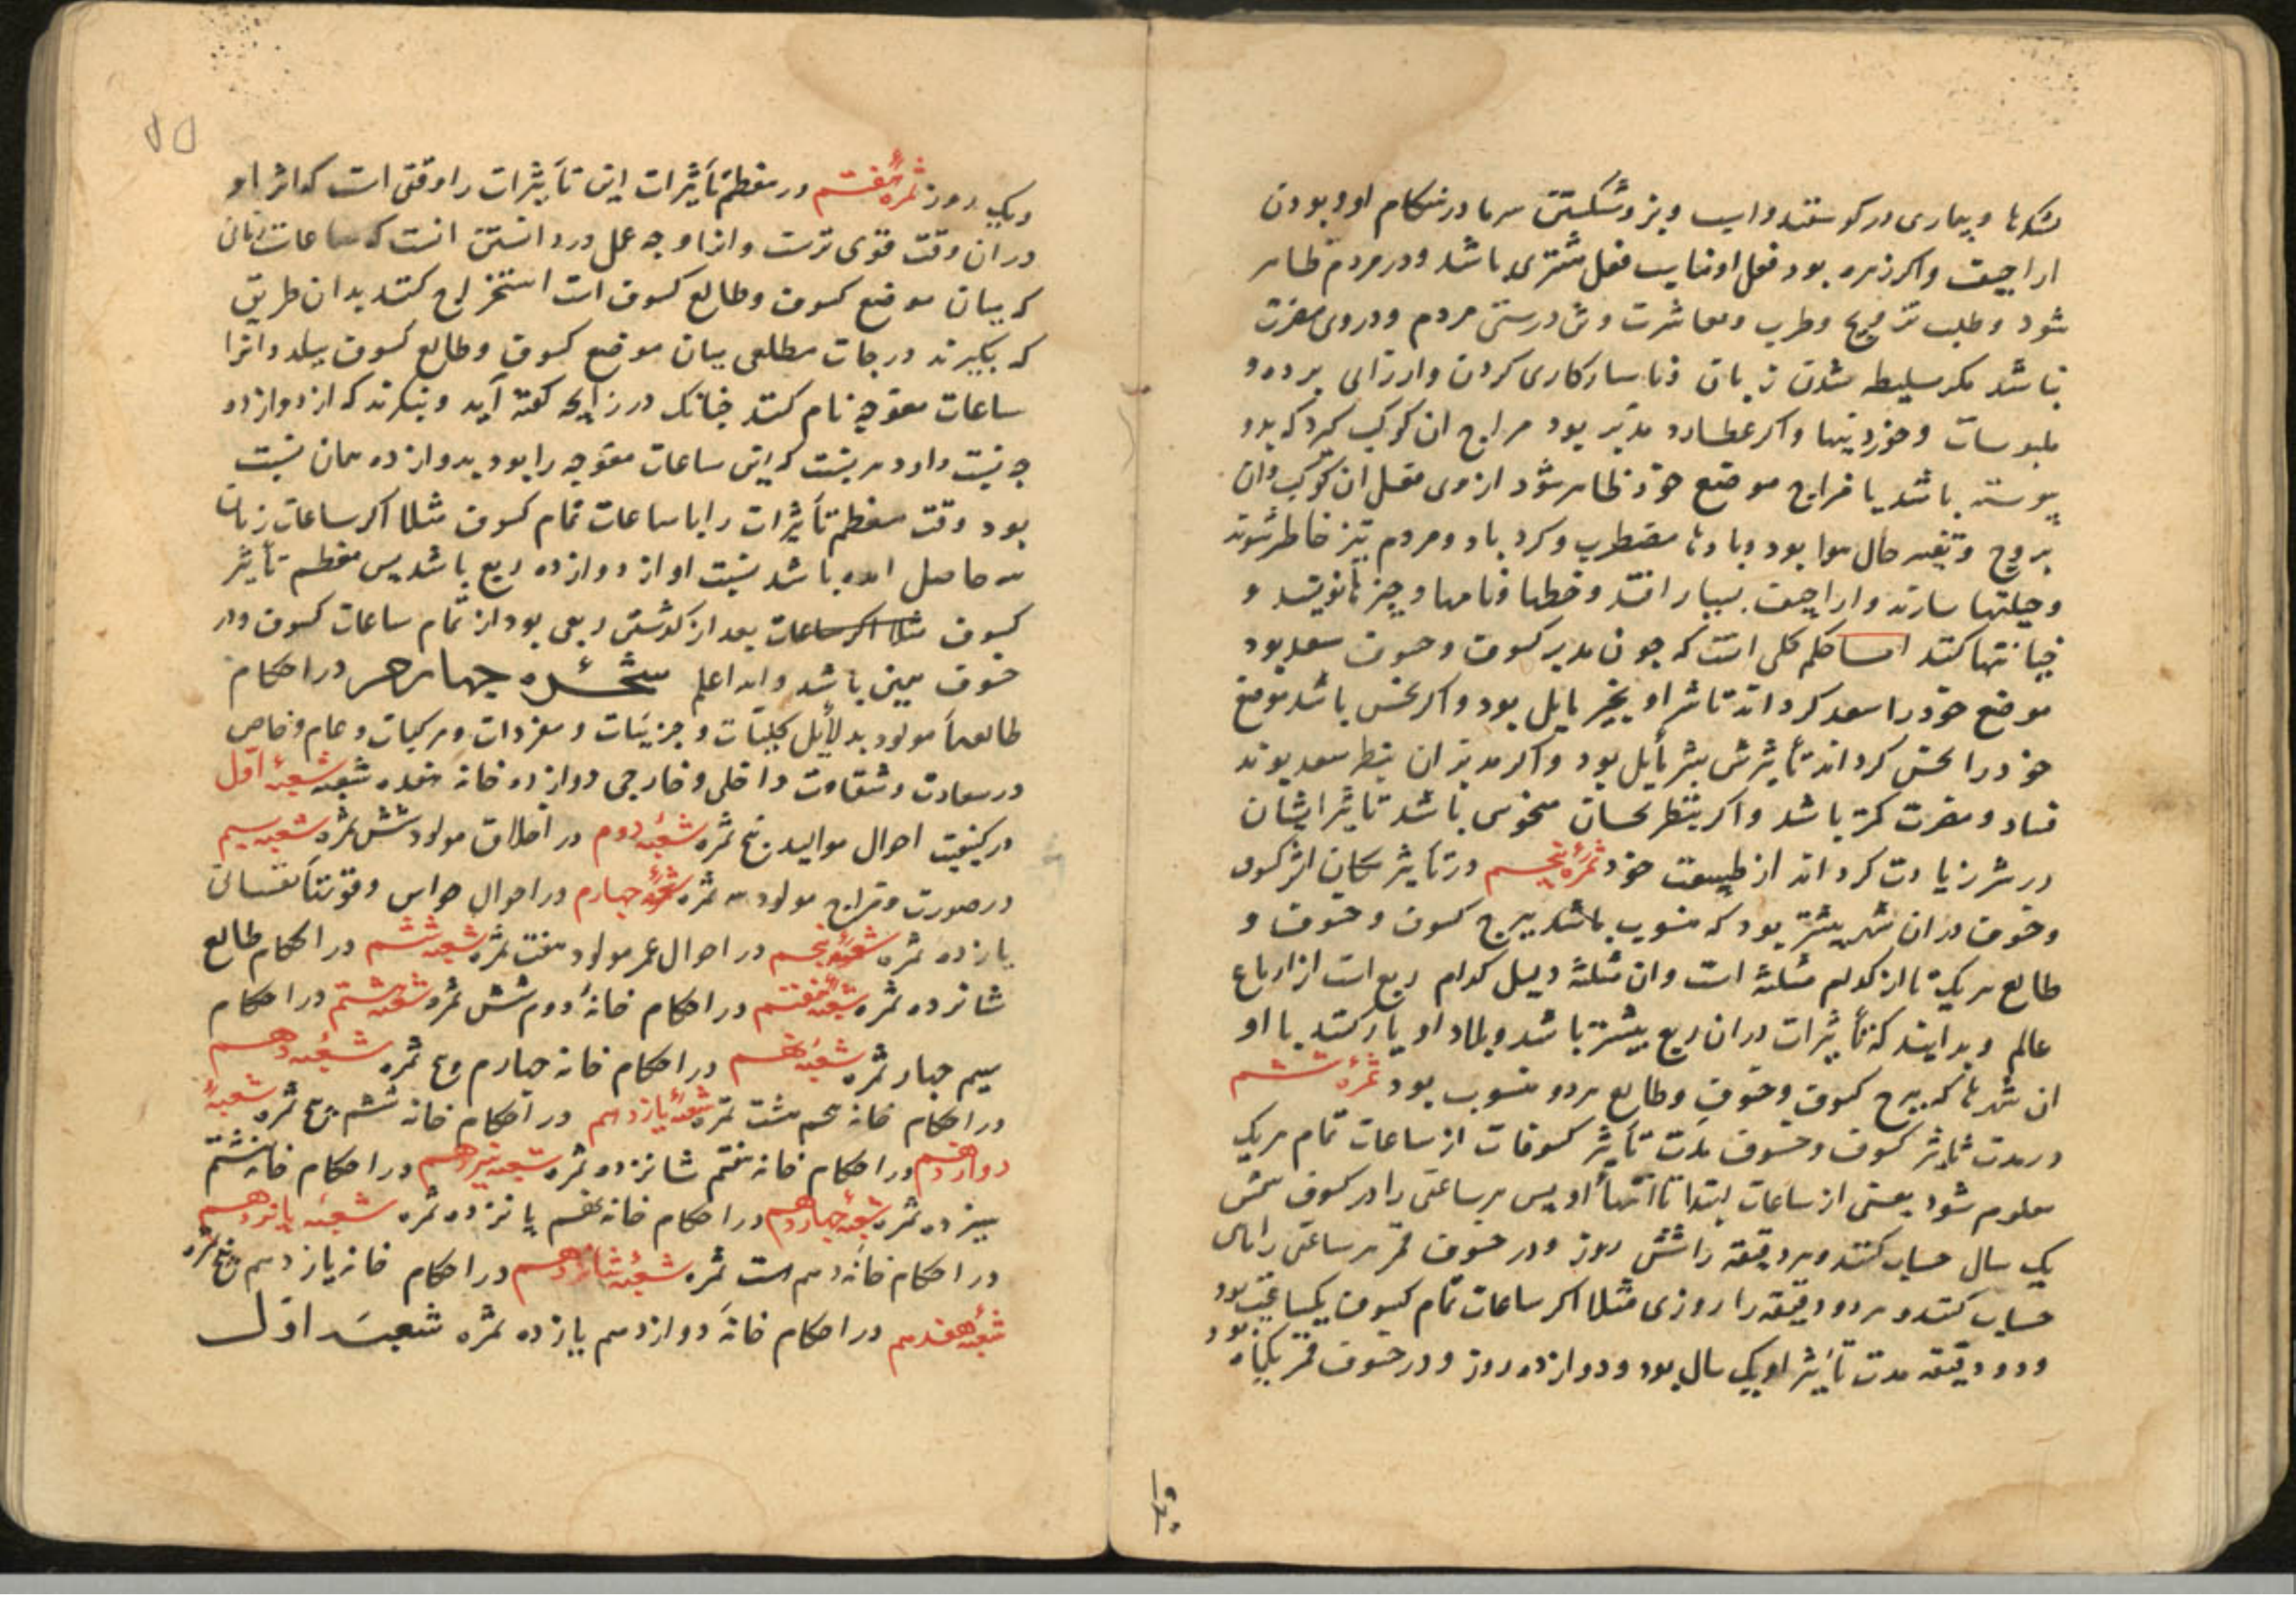 و بیماری در کوسفند و اسب و بز و شکستن سرما در هنکام او و بودن
اراجیف و اکر زهره بود فعل او مناسب فعل مشتری باشد و در مردم ظاهر
شود و طلب تزویج و طرب و معاشرت و تن درستی مردم و در وی مضرت
نباشد مکر سلیطه شدن زنان و ناسازکاری کردن و ارزانی برده و
ملبوسات و خوردنیها و اکر عطارد مدبر بود مزاج ان کوکب کیرد که بدو
پیوسته باشد یا مزاج موضع خود ظاهر شود از وی فعل ان کوکب و ان
بروج و تغیر حال هوا بود و بادها مضطرب و کرد باد و مردم تیز خاطر شوند
و حیلتها سازند و اراجیف بسیار افتد و خطها و نامها و چیزها نویسند و
خیانتها کنند اما حکم کلی انست که چون مدبر کسوف و خسوف سعد بود
موضع خود را سعد کرداند تاثیر او بخیر مایل بود و اکر نحس باشد موضع
خود را نحس کرداند تأثیرش بشر مایل بود و اکر مدبر ان بنظر سعد بوند
فساد و مضرت کمتر باشد و اکر بنظر نحسان منحوس باشد تاثیر ایشان
در شر زیادت کرداند از طبیعت خود ثمرهٔ پنجم در تأثیر مکان اثر کسوف
و خسوف در ان شهر بیشتر بود که منسوب باشد ببرج کسوف و خسوف و
طالع هر یک تا از کدام مثلثه است و ان مثلثه دلیل کدام ربع است از ارباع
عالم و بدانند که تأثیرات در ان ربع بیشتر باشد و بلاد او یاد کنند با او
ان شهرها که ببرج کسوف و خسوف و طالع هر دو منسوب بود ثمرهٔ ششم
در مدت تاثیر کسوف و خسوف مدت تأثیر کسوفات از ساعات تمام هر یک
معلوم شود یعنی از ساعات ابتدا تا انتهاء او پس هر ساعتی را در کسوف شمس
یک سال حساب کنند و هر دقیقه را شش روز و در خسوف قمر هر ساعتی را ماهی
حساب کنند و هر دو دقیقه را روزی مثلا اکر ساعات تمام کسوف یکساعت بود
و دو دقیقه مدت تأثیر او یک سال بود و دوازده روز و در خسوف قمر یکماه بود
و یک روز ثمرهٔ هفتم در معظم تأثیرات این تأثیرات را وقتی است که اثر او
در ان وقت قوی ترست و انرا وجه عمل در دانستن انست که ساعات زمانی
که میان موضع کسوف و طالع کسوف است استخراج کنند بدان طریق
که بکیرند درجات مطلعی میان موضع کسوف و طالع کسوف ببلد و انرا
ساعات معوجه نام کنند چنانک در زایجه کفته آید و بنکرند که از دوازده
چه نسبت دارد هر نسبت که این ساعات معوجه را بود بدوازده همان نسبت
بود وقت معظم تأثیرات را با ساعات تمام کسوف مثلا اکر ساعات زمانی
سه حاصل امده باشد نسبت او از دوازده ربع باشد پس معظم تأثیر
کسوف مثلا اکر ساعات بعد از کذشتن ربعی بود از تمام ساعات کسوف و در
خسوف همین باشد و الله اعلم شجره چهارم در احکام
طالعهاء مولود بدلایل کلیات و جزئیات و مفردات و مرکبات و عام و خاص
در سعادت و شقاوت داخلی و خارجی دوازده خانه هفده شعبه شعبهٔ اول
در کیفیت احوال موالید پنج ثمره شعبهٔ دوم در اخلاق مولود شش ثمره شعبه سیم
در صورت و مزاج مولود سه ثمره شعبهٔ چهارم در احوال حواس و قوتهاء نفسانی
یازده ثمره شعبهٔ پنجم در احوال عمر مولود هفت ثمره شعبه ششم در احکام طالع
شانزده ثمره شعبهٔ هفتم در احکام خانهٔ دوم شش ثمره شعبهٔ هشتم در احکام
سیم چهار ثمره شعبهٔ نهم در احکام خانه چهارم پنج ثمره شعبهٔ دهم
در احکام خانه پنجم هشت ثمره شعبهٔ یازدهم در احکام خانه ششم پنج ثمره شعبهٔ
دوازدهم در احکام خانه هفتم شانزده ثمره شعبه سیزدهم در احکام خانه هشتم
سیزده ثمره شعبهٔ چهاردهم در احکام خانه نهم پانزده ثمره شعبهٔ پانزدهم
در احکام خانه دهم ثمره شعبهٔ شانزدهم در احکام خانه یازدهم پنج ثمره
شعبهٔ هفدهم در احکام خانهٔ دوازدهم یازده ثمره شعبهٔ اول